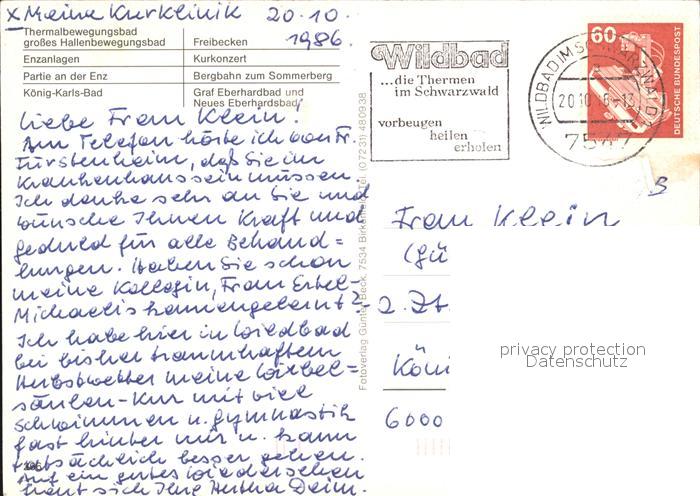 X Meine Kurklinik 20.10.
1986.
Thermalbewegungsbad
großes Hallenbewegungsbad Freibecken
Enzanlagen Kurkonzert
Partie an der Enz Bergbahn zum Sommerberg
König-Karls-Bad Graf Eberhardbad und
Neues Eberhardsbad
Liebe Frau Klein!
Am Telefon hörte ich von Fr.
Fürstenheim, daß Sie im
Krankenhaus sein müssen.
Ich denke sehr an Sie und
wünsche Ihnen Kraft und
Geduld für alle Behand=
lungen. Haben Sie schon
meine Kollegin, Frau
Michaelis kennengelernt?
Ich habe hier in Wildbad
bei bisher traumhaftem
Herbstwetter meine Wirbel-
säulen-Kur mit viel
Schwimmen u. Gymnastik
fast hinter mir u. kann
tatsächlich besser gehen.
Auf ein gutes Wiedersehen
freut sich Ihre Hertha Deim.
Fotoverlag Günter Beck, 7534 Birkenfeld, Tel. (07231) 480938
Wildbad
...die Thermen
im Schwarzwald
vorbeugen
heilen
erholen
WILDBAD IM SCHWARZWALD
20.10.86-13
7547
60
DEUTSCHE BUNDESPOST
Frau Klein
(Gü
z. Zt.
Köni
6000
privacy protection
Datenschutz